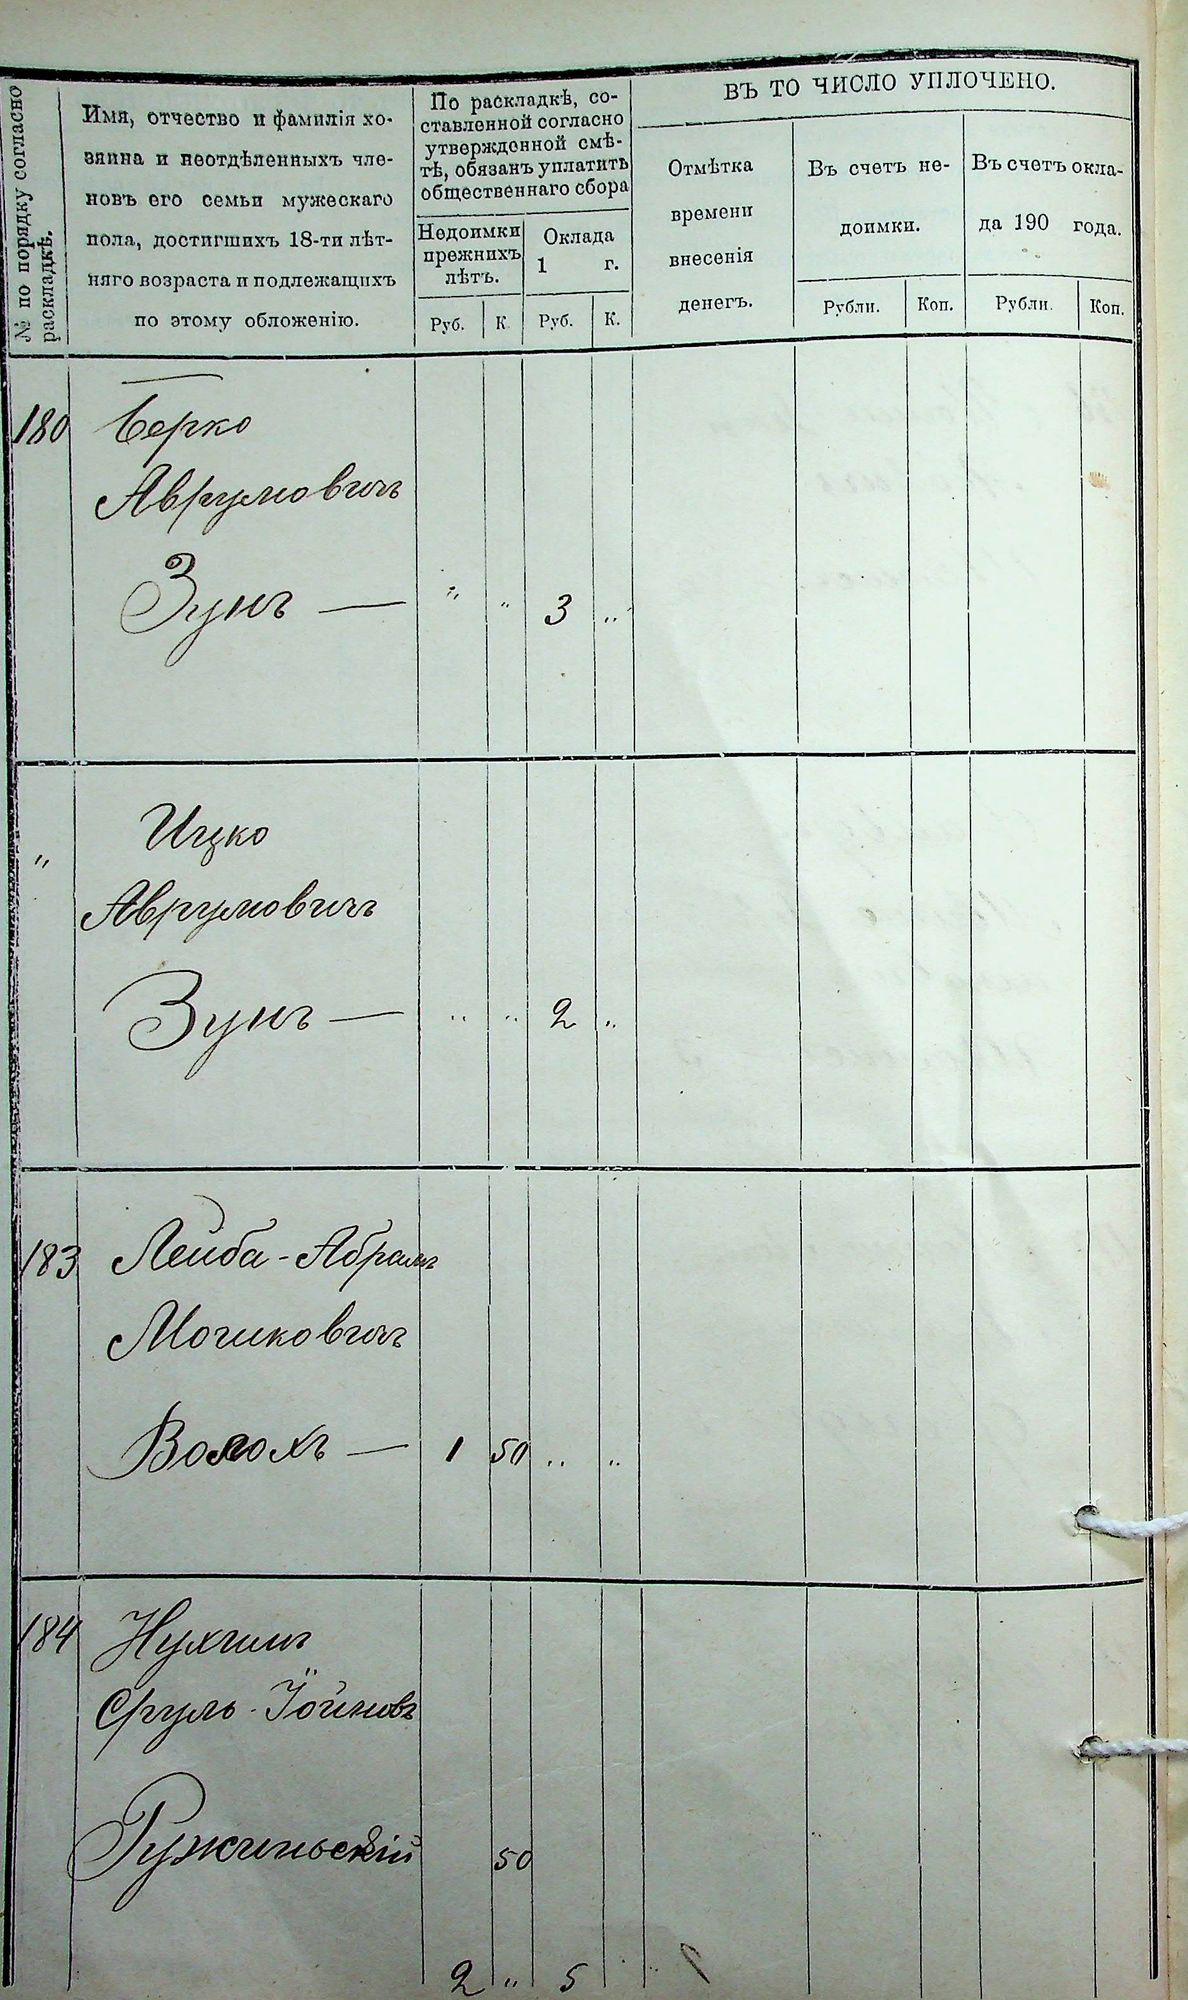 № по порядку согласно
раскладкѣ.
Имя, отчество и фамилія хо-
зяина и неотдѣленныхъ чле-
новъ его семьи мужескаго
пола, достигшихъ 18-ти лѣт-
няго возраста и подлежащихъ
по этому обложенію.
По раскладкѣ, со-
ставленной согласно
утвержденной смѣ-
тѣ, обязанъ уплатить
общественнаго сбора
Недоимки
прежнихъ
лѣтъ.
Оклада
1 г.
Руб. К. Руб. К.
ВЪ ТО ЧИСЛО УПЛОЧЕНО.
Отмѣтка
времени
внесенія
денегъ.
Въ счетъ не-
доимки.
Въ счетъ окла-
да 190 года.
Рубли. Коп. Рубли. Коп.
180 Берко
Аврумовичъ
Зунъ — " " 3 "
" Ицко
Аврумовичъ
Зунъ — " " 2 "
183 Лейба-Абрамъ
Мошковичъ
Волохъ — 1 50 " "
184 Нухимъ
Сруль-Іойновъ
Ружиньскій 50
2 " 5